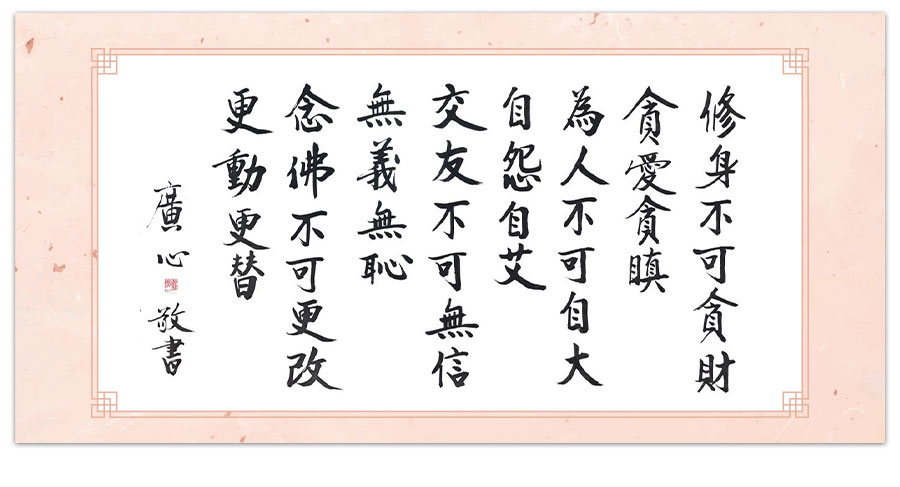 修身不可貪財
貪愛貪瞋
為人不可自大
自怨自艾
交友不可無信
無義無恥
念佛不可更改
更動更替
廣心 敬書